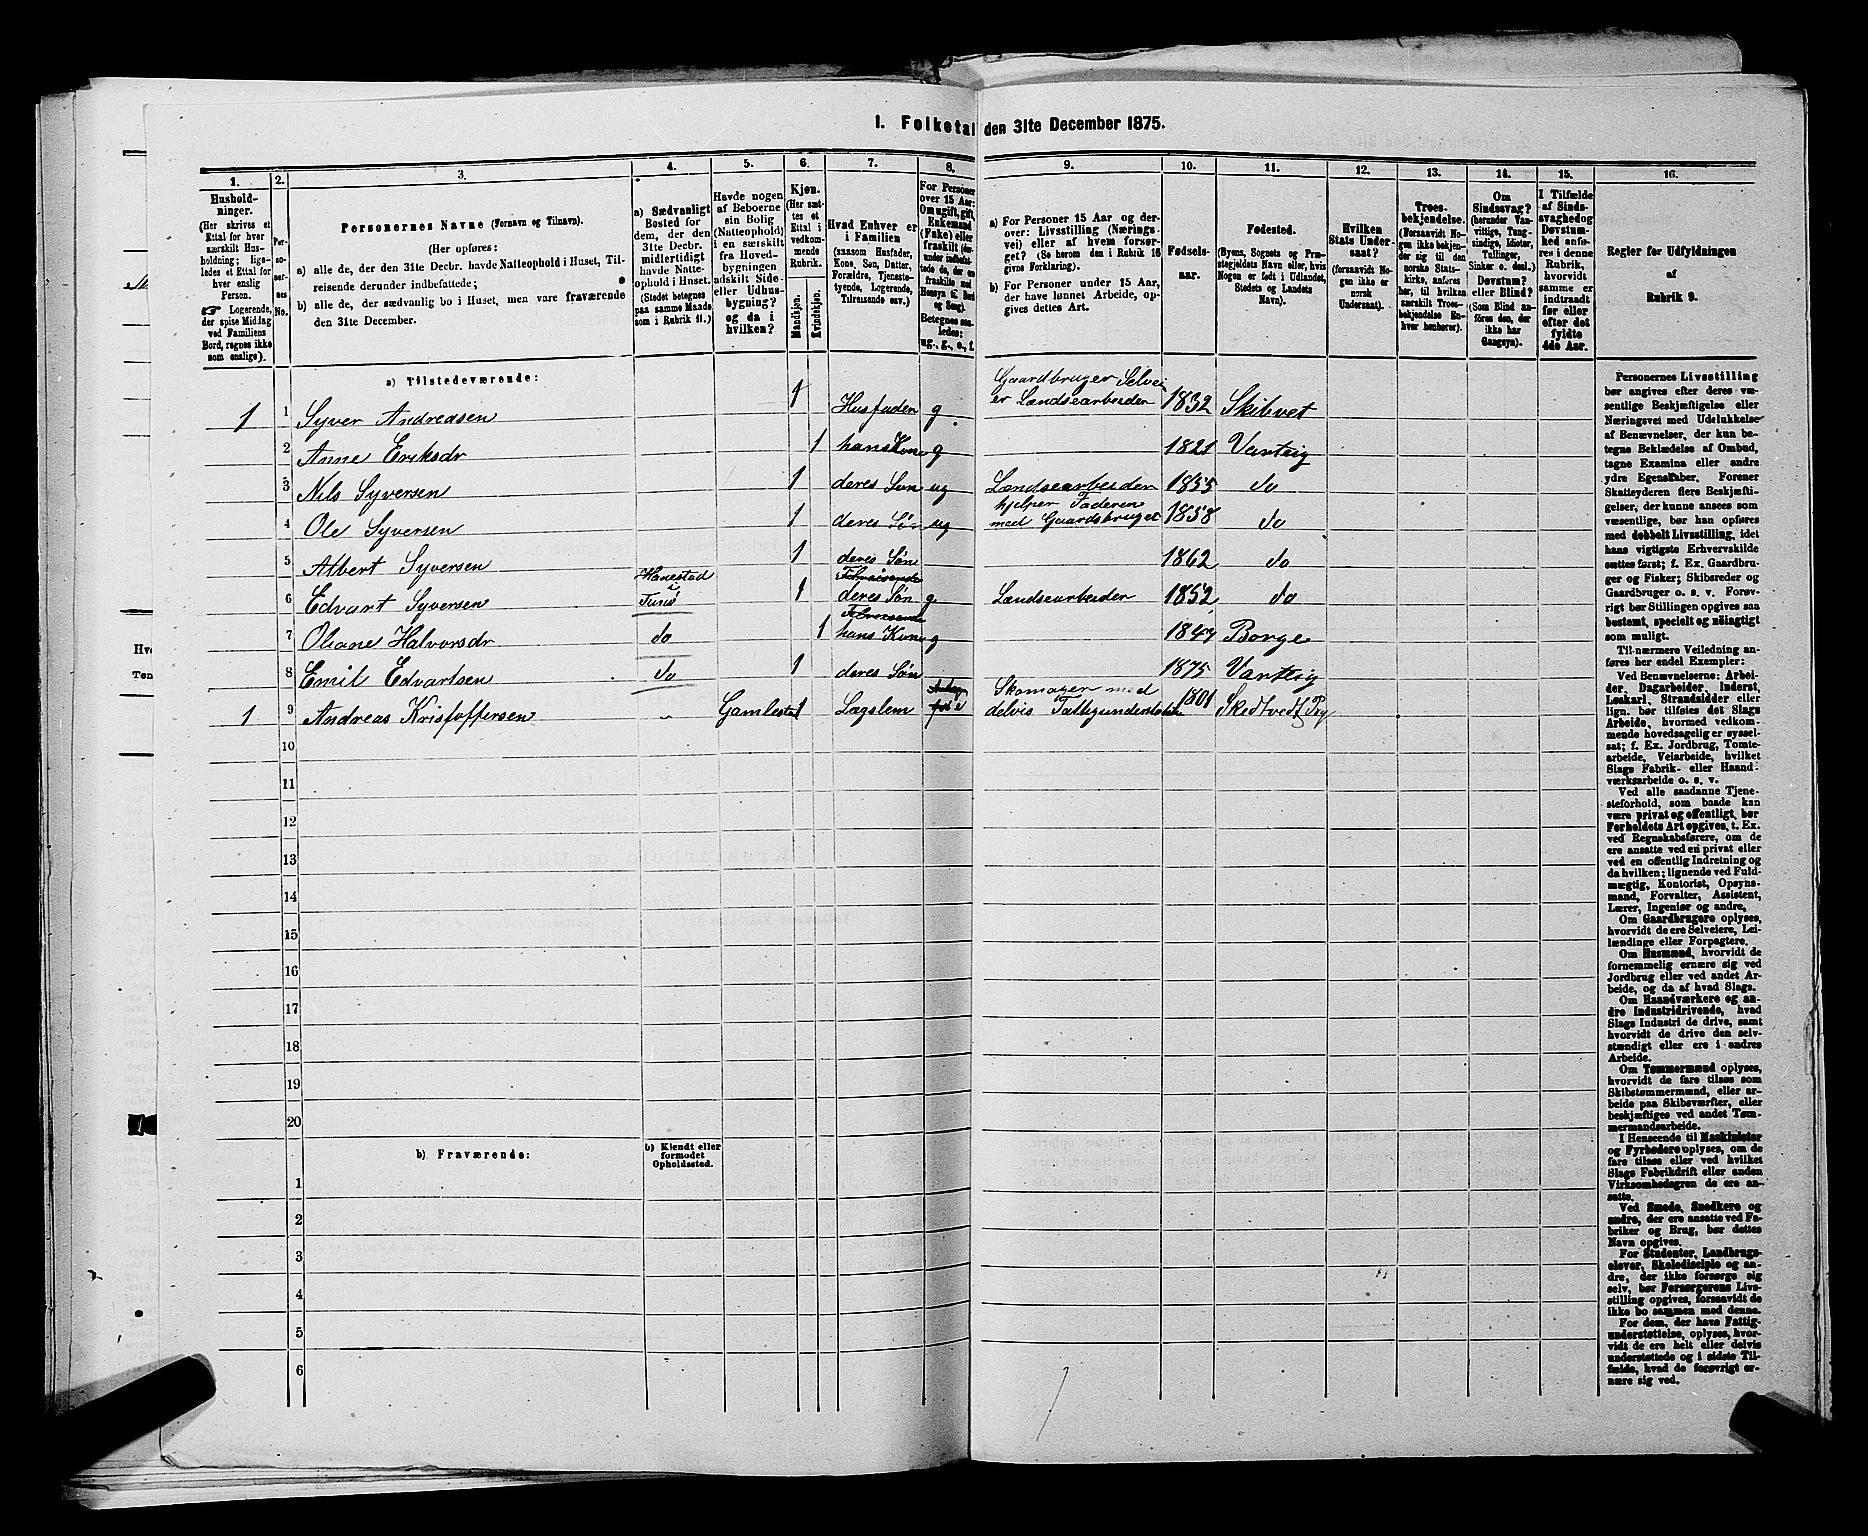 1. Folketal den 31te December 1875.
1. 2. 3. 4. 5. 6. 7. 8. 9. 10. 11. 12. 13. 14. 15. 16.
Husholdninger.
(Her skrives et Ettal for hver særskilt Husholdning; ligeledes et Ettal for hver enslig Person.
☞ Logerende, der spise Middag ved Familiens Bord, regnes ikke som enslige).
Personernes No.
Personernes Navne (Fornavn og Tilnavn).
(Her opføres:
a) alle de, der den 31te Decbr. havde Natteophold i Huset, Tilreisende derunder indbefattede;
b) alle de, der sædvanlig bo i Huset, men vare fraværende den 31te December.
a) Sædvanligt Bosted for dem, der den 31te Decbr. midlertidigt havde Natteophold i Huset. (Stedet betegnes paa samme Maade som i Rubrik 11.)
Havde nogen af Beboerne sin Bolig (Natteophold) i en særskilt fra Hovedbygningen adskilt Side- eller Udhusbygning? og da i hvilken?
Kjøn.
(Her sættes et Ettal i vedkommende Rubrik.
Mandkjøn. Kvindekjøn.
Hvad Enhver er i Familien
(saasom Husfader, Kone, Søn, Datter, Forældre, Tjenestetyende, Logerende, Tilreisende osv.)
For Personer over 15 Aar: Om ugift, gift, Enkemand (Enke) eller fraskilt
Betegnes saaledes: ug., g., e., f.
a) For Personer 15 Aar og derover: Livsstilling (Næringsvei) eller af hvem forsørget? (Se herom den i Rubrik 16 givne Forklaring).
b) For Personer under 15 Aar, der have lønnet Arbeide, opgives dettes Art.
Fødselsaar.
Fødested.
(Byens, Sognets og Præstegjeldets Navn eller, hvis Nogen er født i Udlandet, Stedets og Landets Navn).
Hvilken Stats Undersaat?
(forsaavidt Nogen ikke er norsk Undersaat).
Troesbekjendelse.
(Forsaavidt Nogen ikke bekjender sig til den norske Statskirke, anføres her, til hvilken særskilt Troesbekjendelse Enhver henhører).
Om Sindssvag? (herunder Vanvittige, Tungsindige, Idioter, Tullinger, Sinker o. desl.) Døvstum? eller Blind? (Som Blind anføres den, der ikke har Gangsyn).
I Tilfælde af Sindssvaghed og Døvstumhed anføres i denne Rubrik, hvorvidt samme er indtraadt før eller efter det fyldte 4de Aar.
Regler for Udfyldningen af Rubrik 9.
a) Tilstedeværende:
1 1 Syver Andreasen 1 Husfader g Gaardbruger Selveier Landsearbeider 1832 Skibvet
2 Anne Eriksdr 1 hans Kone g 1821 Varteig
3 Nils Syversen 1 deres Søn ug Landsearbeider 1855 do
4 Ole Syversen 1 deres Søn ug hjelper Faderen med Gaardsbruget 1858 do
5 Albert Syversen 1 deres Søn 1862 do
6 Edvart Syversen Hanestad i Tune 1 Tilreisende deres Søn g Landsearbeider 1852 do
7 Oliane Halvorsdr do 1 Tilreisende hans Kone g 1847 Borge
8 Emil Edvartsen do 1 deres Søn 1875 Varteig
1 9 Andreas Kristoffersen „ Gamlestu 1 Lægslem Skomager med delvis Fattigunderstøttelse 1801
10
11
12
13
14
15
16
17
18
19
20
b) Fraværende:
b) Kjendt eller formodet Opholdssted.
1
2
3
4
5
6
Personernes Livsstilling bør angives efter deres væsentlige Beskjæftigelse eller Næringsvei med Udelukkelse af Benævnelser, der kun betegne Beklædelse af Ombud, tagne Examina eller andre ydre Egenskaber. Forener Skatteyderen flere Beskjæftigelser, der kunne ansees som væsentlige, bør han opføres med dobbelt Livsstilling, idet hans vigtigste Erhvervskilde sættes først; f. Ex. Gaardbruger og Fisker; Skibsreder og Gaardbruger o. s. v. Forøvrigt bør Stillingen opgives saa bestemt, specielt og nøiagtigt som muligt.
Til nærmere Veiledning anføres her endel Exempler:
Ved Benævnelserne: Arbeider, Dagarbeider, Inderst, Løskarl, Strandsidder eller lign. bør tilføies det Slags Arbeide, hvormed vedkommende hovedsagelig er sysselsat; f. Ex. Jordbrug, Tomtearbeide, Veiarbeide, hvilket Slags Fabrik- eller Haandværksarbeide o. s. v.
Ved alle saadanne Tjenesteforhold, som baade kan være privat og offentligt, bør Forholdets Art opgives, t. Ex. ved Regnskabsførere, om de ere ansatte ved en privat eller ved en offentlig Indretning og da hvilken; lignende ved Fuldmægtig, Kontorist, Opsynsmand, Forvalter, Assistent, Lærer, Ingeniør og andre.
Om Gaardbrugere oplyses, hvorvidt de ere Selveiere, Leilændinge eller Forpagtere.
Om Husmænd, hvorvidt de fornemmelig ernære sig ved Jordbrug eller ved andet Arbeide, og da af hvad Slags.
Om Haandværkere og andre Industridrivende, hvad Slags Industri de drive, samt hvorvidt de drive den selvstændigt eller ere i andres Arbeide.
Om Tømmermænd oplyses, hvorvidt de fare tilsøs som Skibstømmermænd, eller arbeide paa Skibsværfter, eller beskjæftiges ved andet Tømmermandsarbeide.
I Henseende til Maskinister og Fyrbødere oplyses, om de fare tilsøs eller ved hvilket Slags Fabrikdrift eller anden Virksomhedsgren de ere ansatte.
Ved Smede, Snedkere og andre, der ere ansatte ved Fabriker og Brug, bør dettes Navn opgives.
For Studenter, Landbrugselever, Skoledisciple og andre, der ikke forsørge sig selv, bør Forsørgerens Livsstilling opgives, forsaavidt de ikke bo sammen med denne.
For dem, der have Fattigunderstøttelse, oplyses, hvorvidt de ere helt eller delvis understøttede og i sidste Tilfælde, hvad de forøvrigt ernære sig ved.